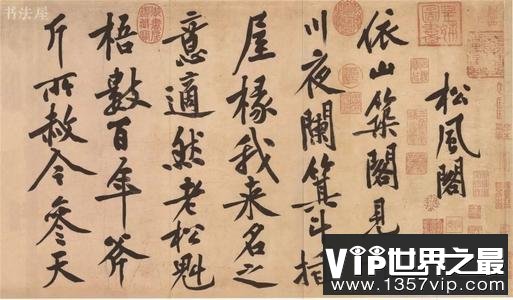 书法屋
松風閣
依山築閣見
川夜闌箕斗插
屋椽我來名之
意適然老松魁
梧數百年斧
斤所赦令參天
VIP世界之最
www.1357vip.com